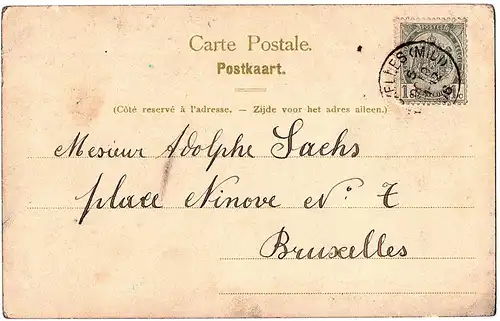 Carte Postale.
Postkaart.
(Côté reservé à l'adresse. – Zijde voor het adres alleen.)
Mesieur Adolphe Sachs
place Ninove No. 7
Bruxelles
ELLES (MIDI)
1